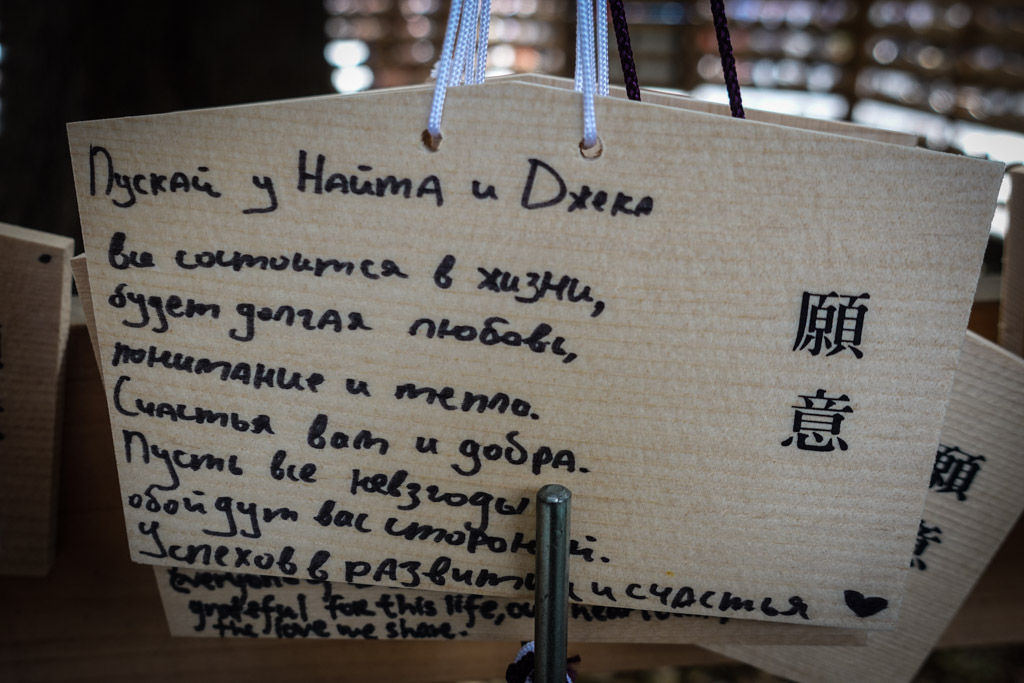 Пускай у Найта и Джека
все состоится в жизни,
будет долгая любовь,
понимание и тепло.
Счастья вам и добра.
Пусть все невзгоды
обойдут вас стороной.
Успехов в развитии и счастья ♥
願意
grateful for this life, our
the love we share.
願意